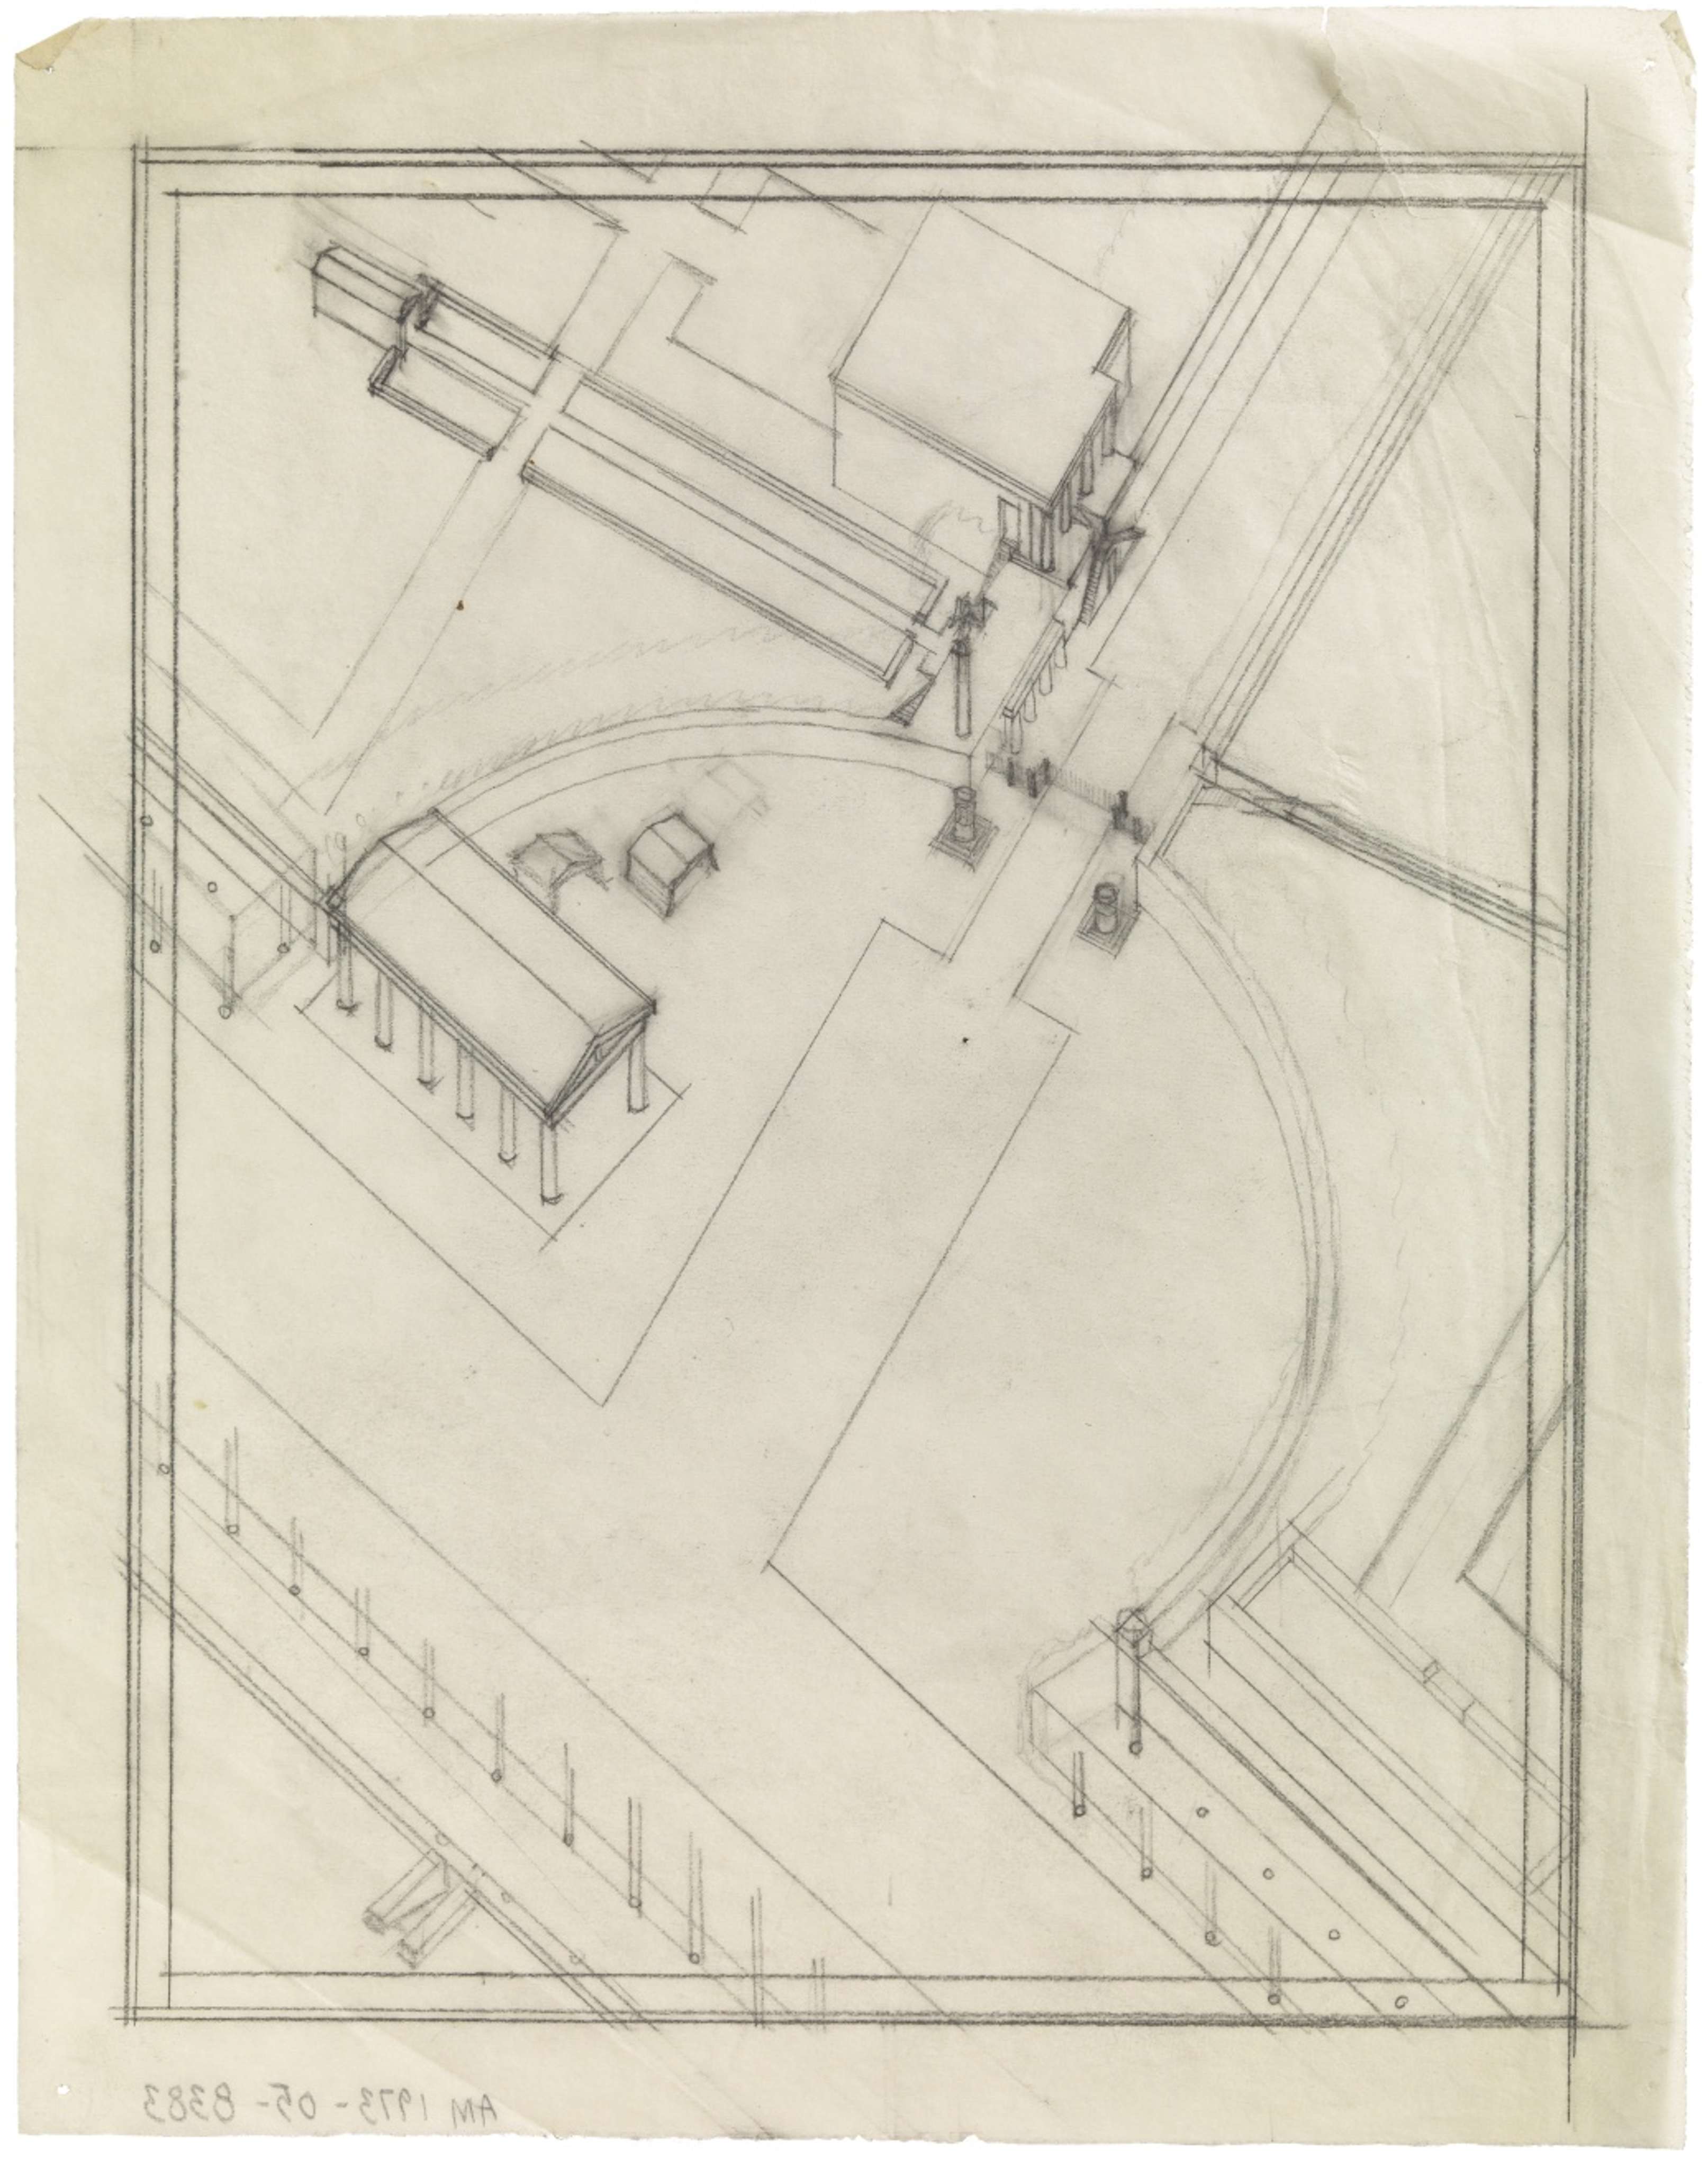 AM 1973-05-8383